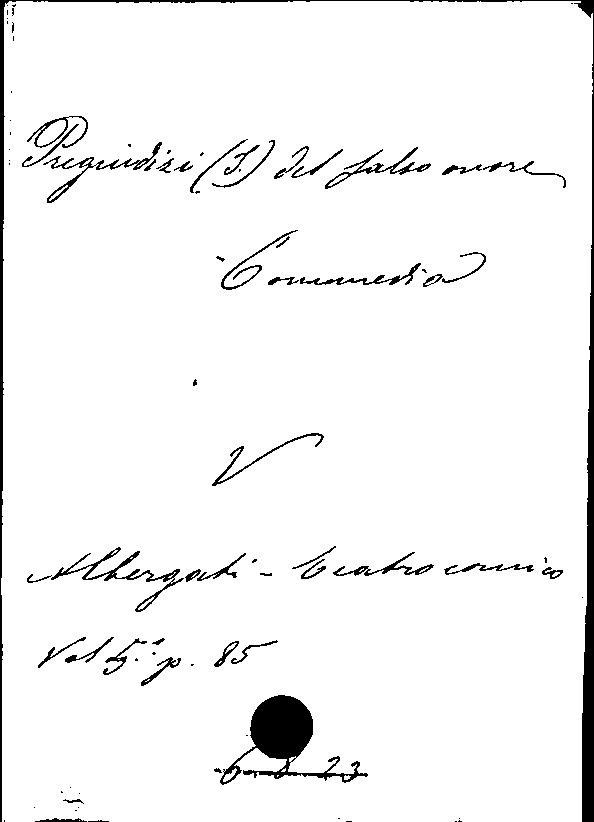 Pregiudizi (I.) del falso onore
Commedia
V
Albergati - Teatro comico
Vol 5.º p. 85
6 8 23